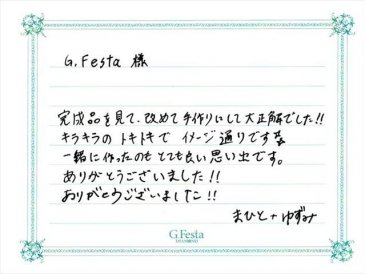 G.Festa 様
完成品を見て、改めて手作りにして大正解でした!!
キラキラの トキトキで イメージ通りです
一緒に作ったのも とても良い思い出です。
ありがとうございました!!
ありがとうございました!!
まひと + ゆずみ
G.Festa